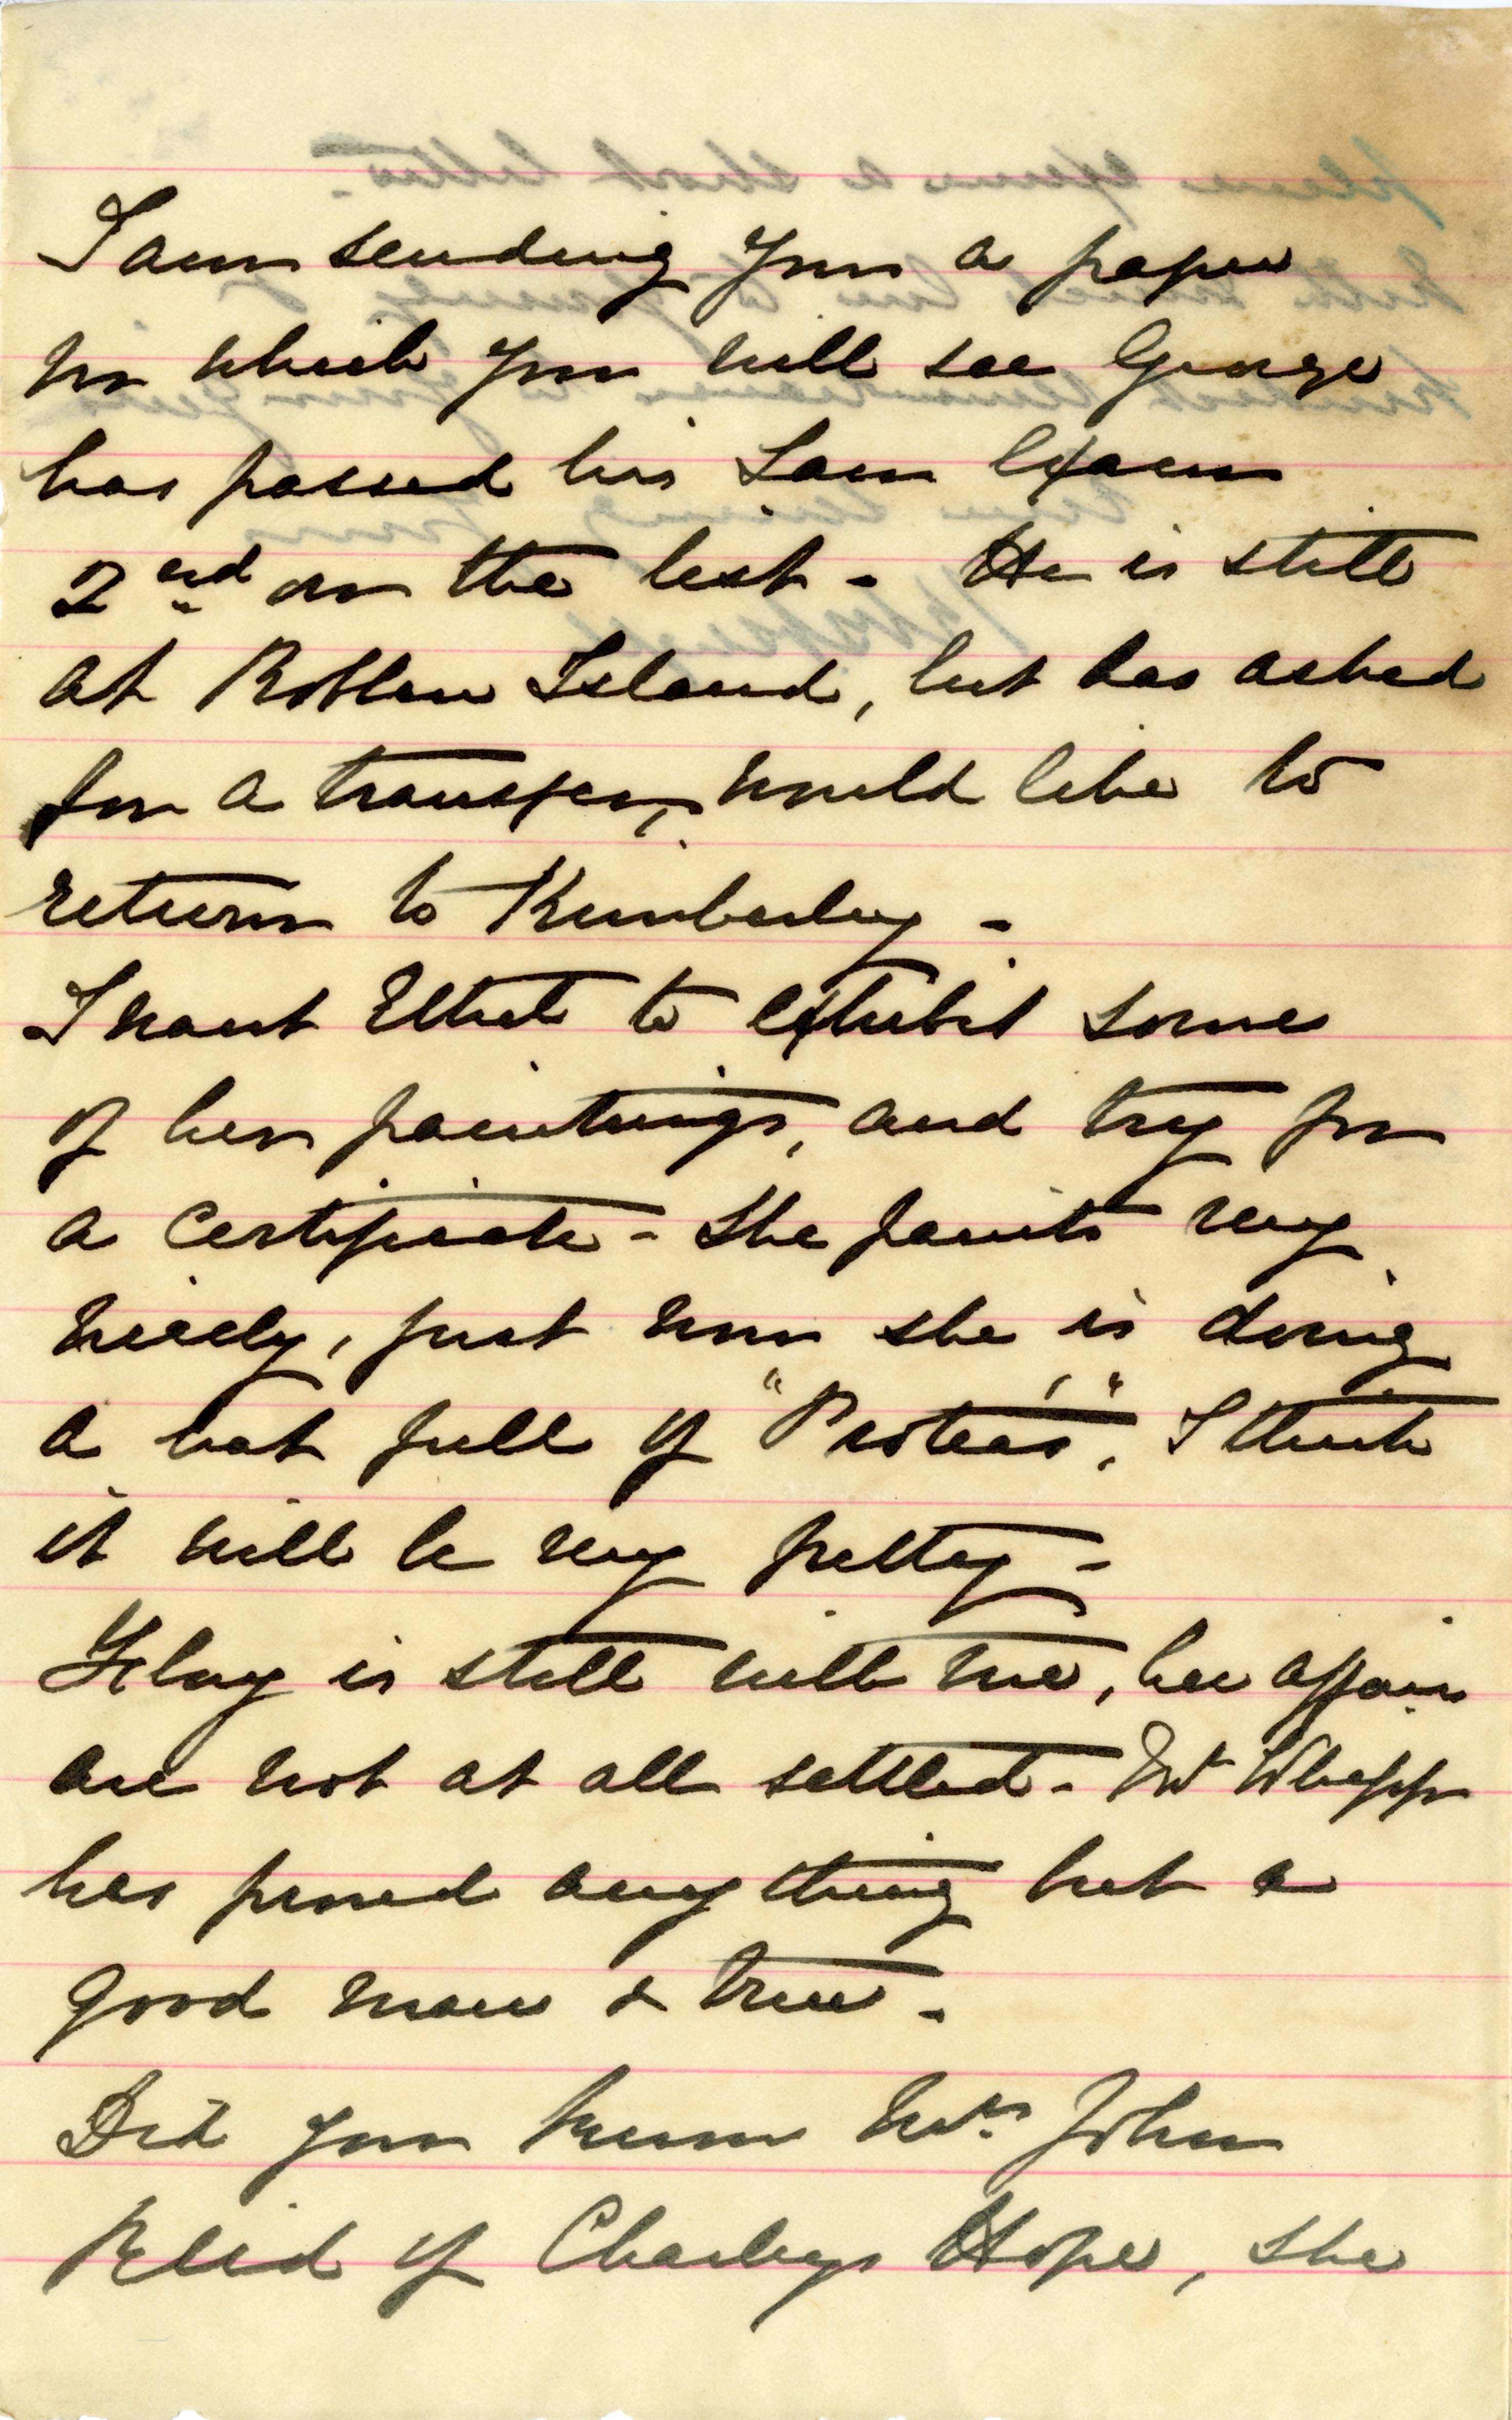 I am sending you a paper
in which you will see George
has passed his Law Exam
2nd on the list - He is still
at Robben Island, but has asked
for a transfer, would like to
return to Kimberley -
I want Ethel to exhibit some
of her paintings, and try for
a certificate - She paints very
nicely, just now she is doing
a hat full of "Protea's", I think
it will be very pretty -
is still with me, her affairs
are not at all settled - Mr
has proved anything but a
good man & true -
Did you know Mrs John
Reid of Charleys Hope, she